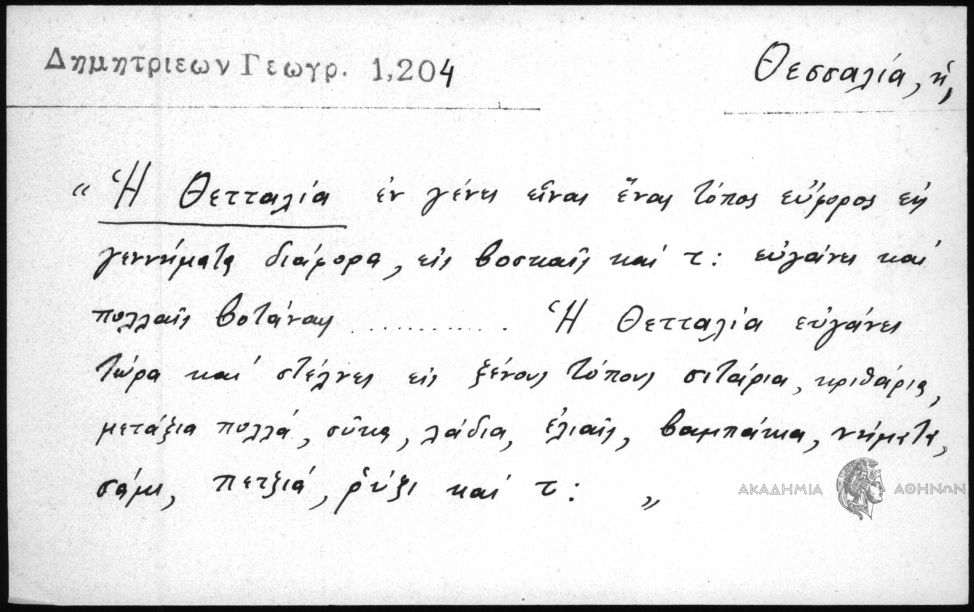 Δημητριεων Γεωγρ. 1,204
Θεσσαλία, ἡ,
“ Ἡ Θετταλία ἐν γένει εἶναι ἕνας τόπος εὔφορος εἰς
γεννήματα διάφορα, εἰς βοσκαῖς καί τ: εὐγάνει καί
πολλαῖς βοτάναις ............ Ἡ Θετταλία εὐγάνει
τώρα καί στέλνει εἰς ξένους τόπους σιτάρια, κριθάρια,
μετάξια πολλά, σῦκα, λάδια, ἐλιαῖς, βαμπάκια, νήματα,
σάμι, πετζιά, ῥύζι καί τ: „
ΑΚΑΔΗΜΙΑ ΑΘΗΝΩΝ